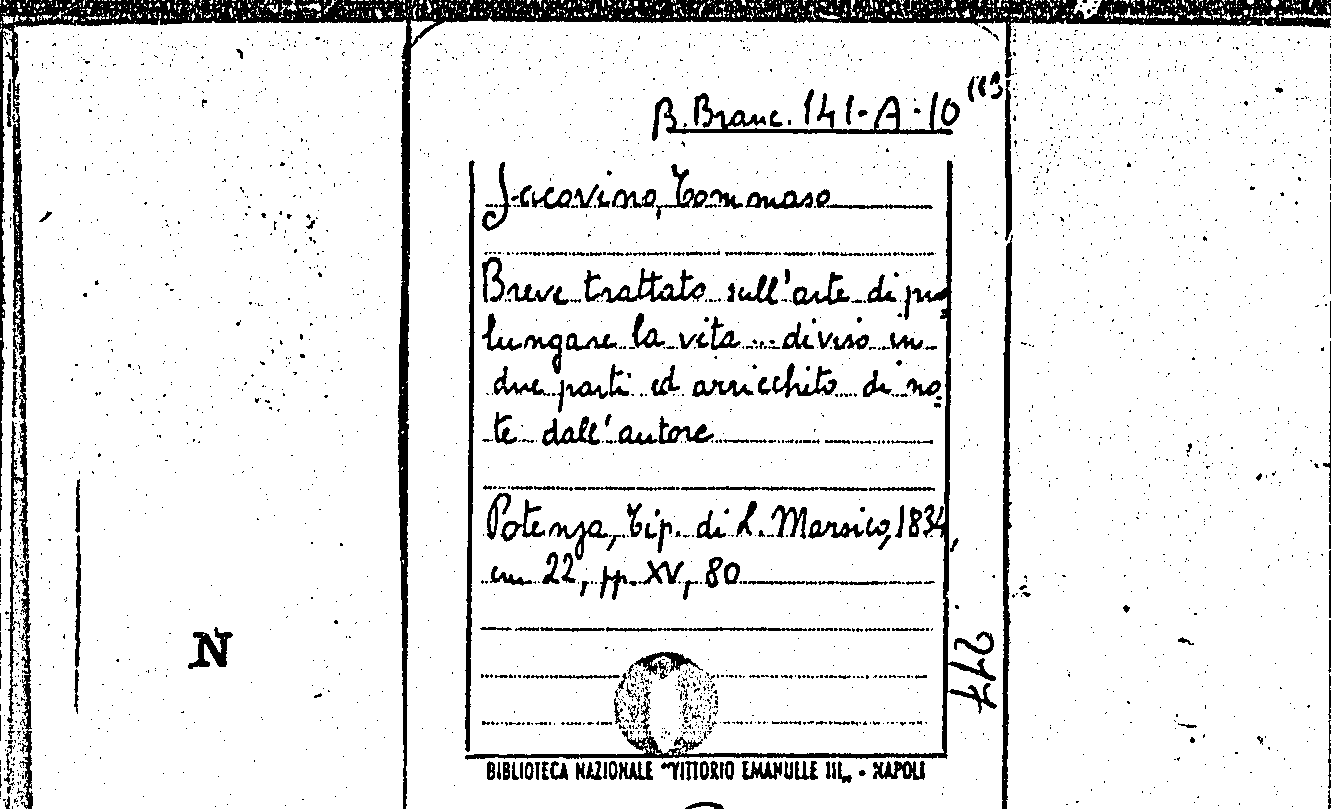 B. Branc. 141-A-10 (13
Jacovino, Tommaso
Breve trattato sull'arte di pro=
lungare la vita ... diviso in
due parti ed arricchito di no=
te dall'autore
Potenza, Tip. di L. Marsico, 1834,
cm 22, pp. XV, 80
N
277
BIBLIOTECA NAZIONALE "VITTORIO EMANUELE III„ - NAPOLI